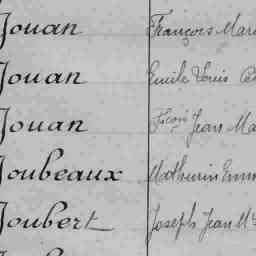 Jouan François Mar
Jouan Emile Louis
Jouan Fçois Jean Ma
Joubeaux Mathurin Emm
Joubert Joseph Jean M